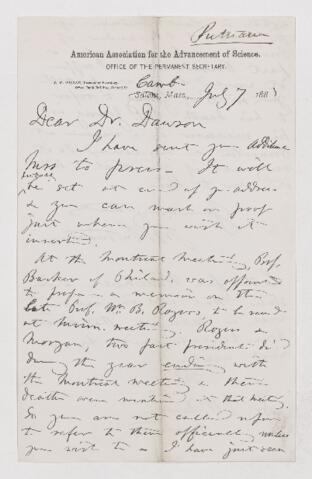 Putnam
American Association for the Advancement of Science.
OFFICE OF THE PERMANENT SECRETARY.
Camb
Salem, Mass., July 7 188
Dear Dr. Dawson
I have sent your additional
mss to press. It will
be set at end of yr address
& you can mark on proof
just where you wish it
inserted.
At the Montreal Meeting, Prof.
Barker of Philad. was appointed
to prepare a memoir on the
late Prof. Wm. B. Rogers, to be read
at Minn. meeting. Rogers &
Morgan, two past presidents died
during the year ending with
the Montreal meeting & their
deaths were mentioned at that meeting
So you are not called upon
to refer to them officially unless
you wish to. I have just seen